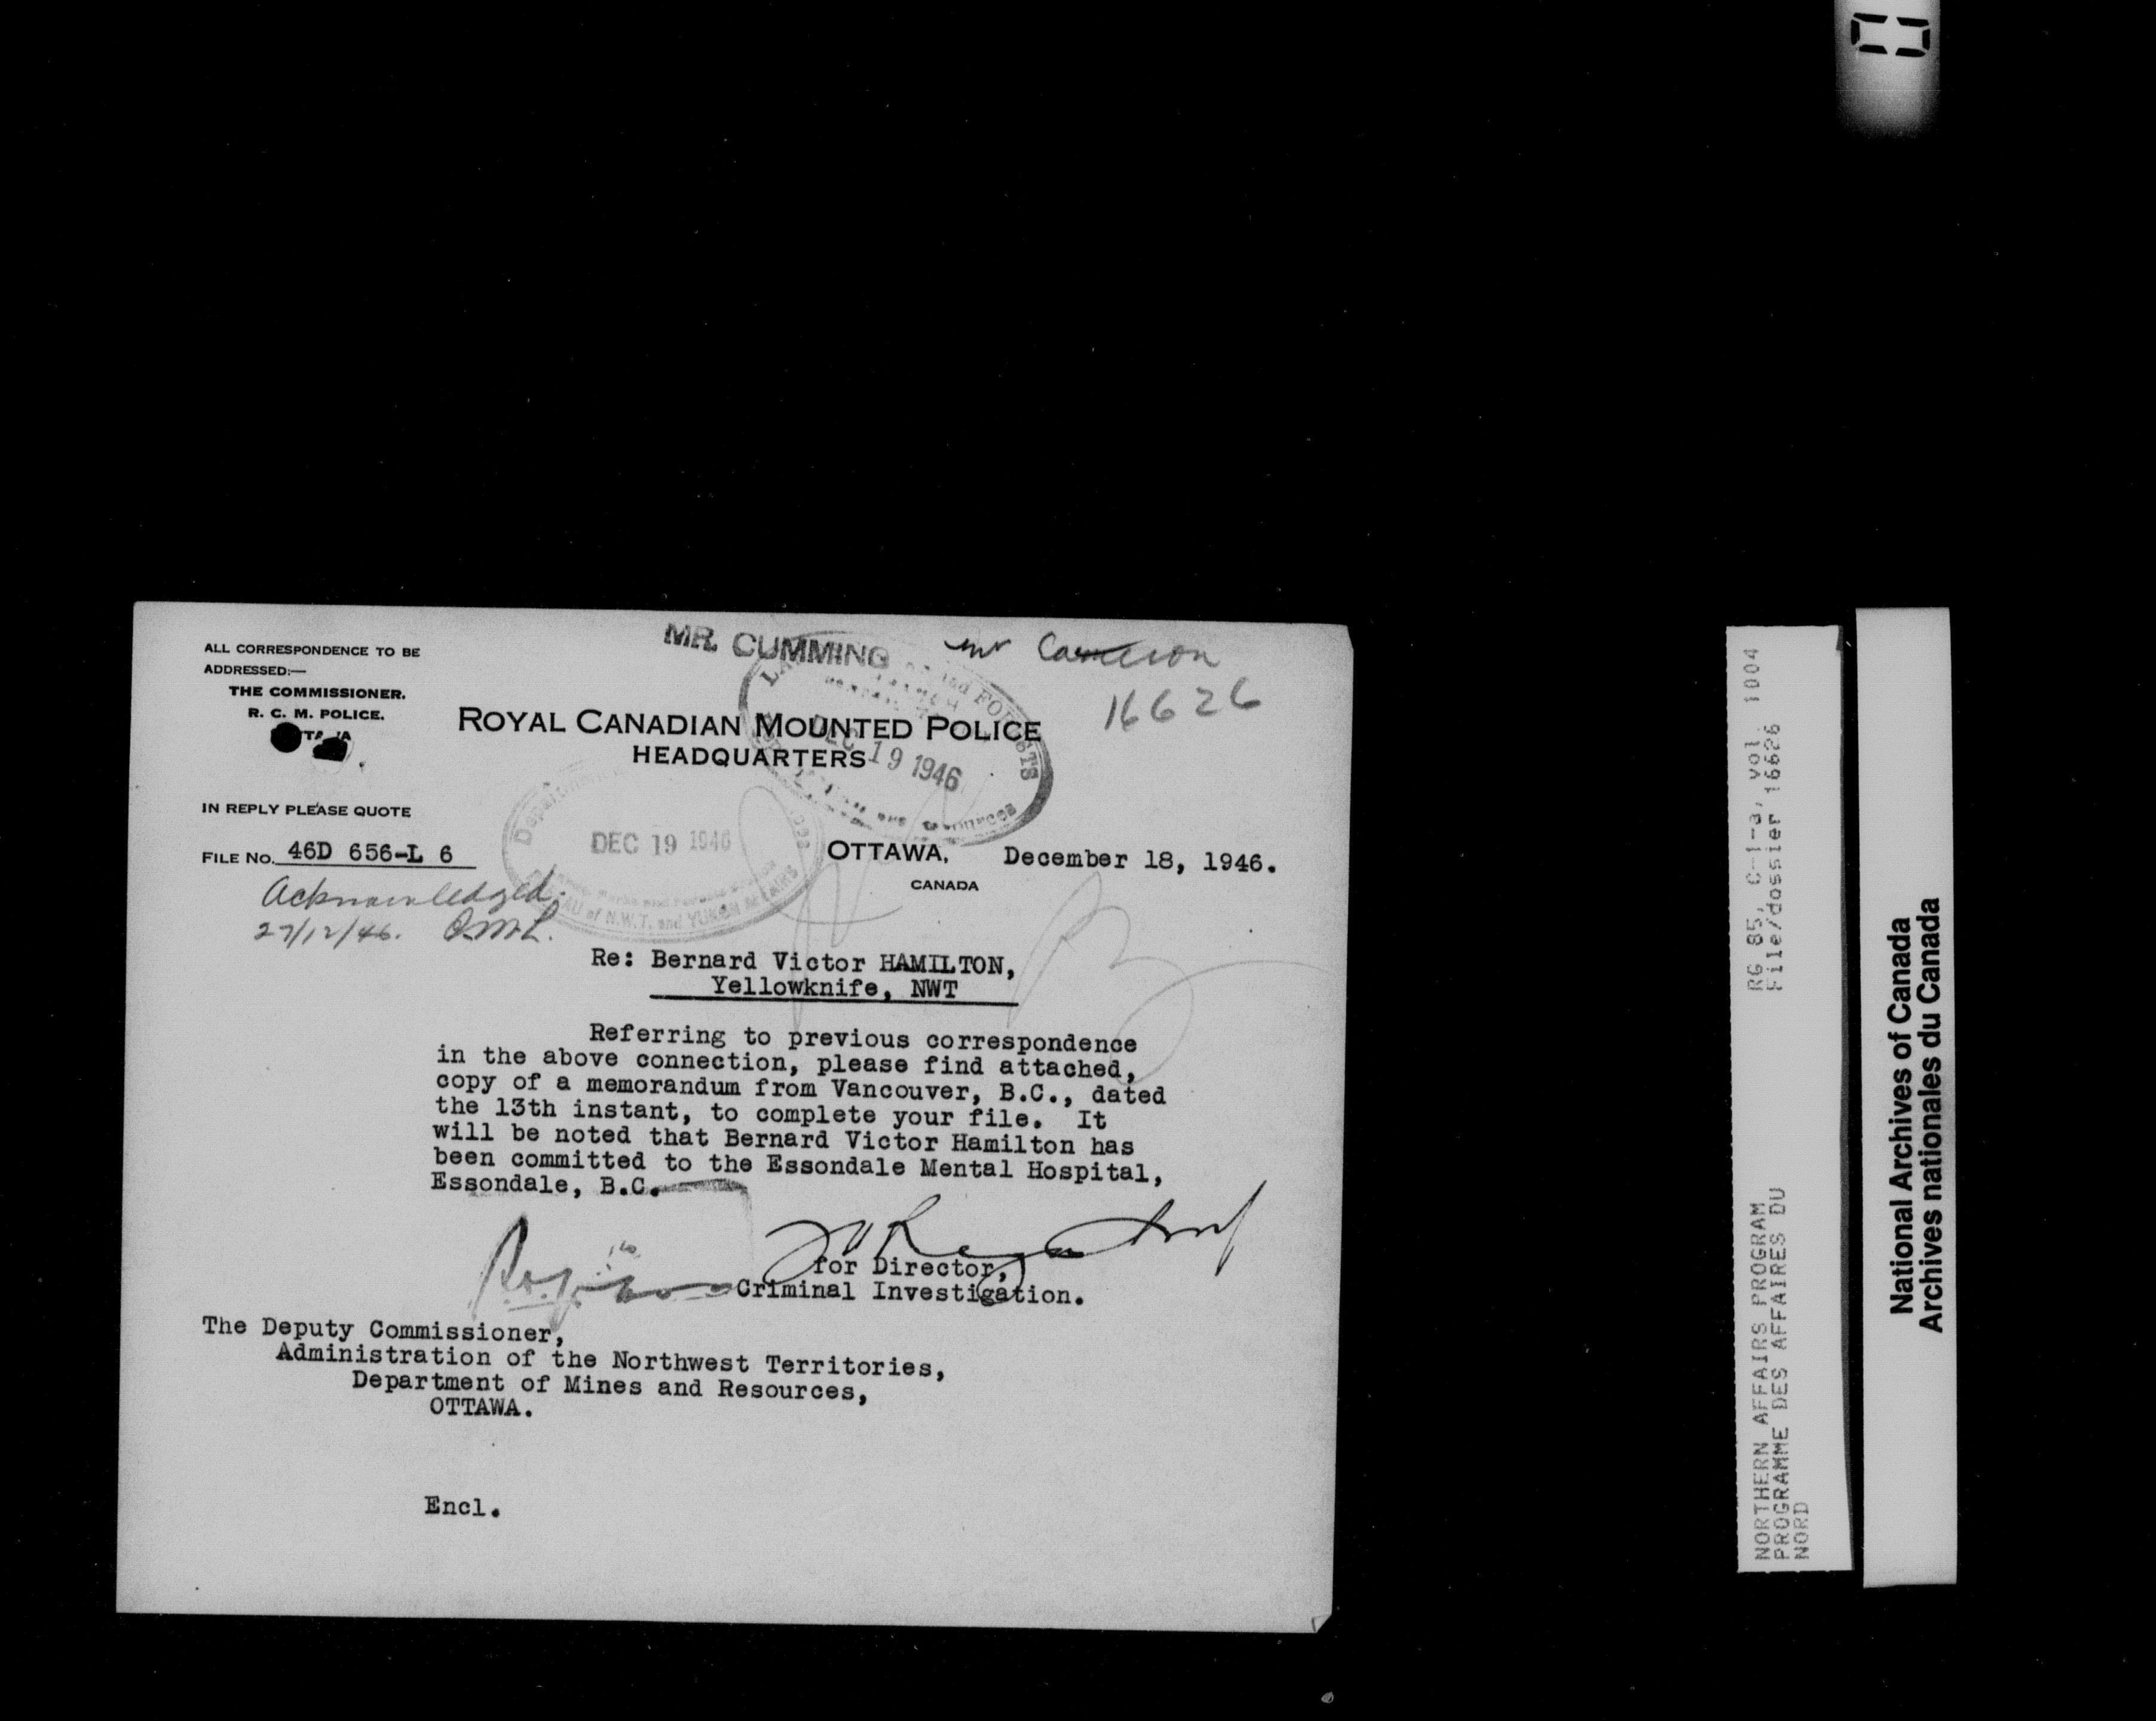 MR. CUMMING
Mr Cameron
16626
ALL CORRESPONDENCE TO BE
ADDRESSED:—
THE COMMISSIONER.
R. C. M. POLICE.
ROYAL CANADIAN MOUNTED POLICE
HEADQUARTERS
DEC 19 1946
IN REPLY PLEASE QUOTE
FILE No. 46D 656-L 6
DEC 19 1946
BUREAU of N.W.T. and YUKON AFFAIRS
OTTAWA, December 18, 1946.
CANADA
Acknowledged.
27/12/46.
Re: Bernard Victor HAMILTON,
Yellowknife, NWT
Referring to previous correspondence
in the above connection, please find attached,
copy of a memorandum from Vancouver, B.C., dated
the 13th instant, to complete your file. It
will be noted that Bernard Victor Hamilton has
been committed to the Essondale Mental Hospital,
Essondale, B.C.
for Director,
Criminal Investigation.
The Deputy Commissioner,
Administration of the Northwest Territories,
Department of Mines and Resources,
OTTAWA.
Encl.
RG 85, C-1-a, vol. 1004
File/dossier 16626
NORTHERN AFFAIRS PROGRAM
PROGRAMME DES AFFAIRES DU
NORD
National Archives of Canada
Archives nationales du Canada